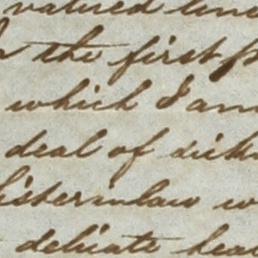 valued
the first
which I am
deal of
sisterinlaw
delicate